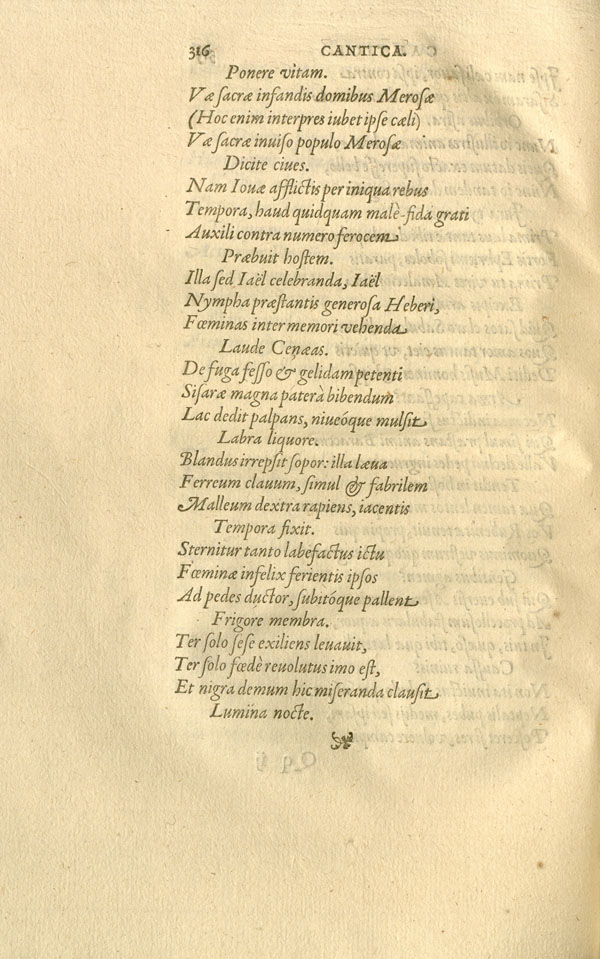 316 CANTICA.
Ponere vitam.
Væ sacræ infandis domibus Merosæ
(Hoc enim interpres iubet ipse cæli)
Væ sacræ inuiso populo Merosæ
Dicite ciues.
Nam Iouæ afflictis per iniqua rebus
Tempora, haud quidquam malè-fida grati
Auxili contra numero ferocem
Præbuit hostem.
Illa sed Iaël celebranda, Iaël
Nympha præstantis generosa Heberi,
Fœminas inter memori vehenda
Laude Cenæas.
De fuga fesso & gelidam petenti
Sisaræ magna paterà bibendum
Lac dedit palpans, niueóque mulsit
Labra liquore.
Blandus irrepsit sopor: illa læua
Ferreum clauum, simul & fabrilem
Malleum dextra rapiens, iacentis
Tempora fixit.
Sternitur tanto labefactus ictu
Fœminæ infelix ferientis ipsos
Ad pedes ductor, subitóque pallent
Frigore membra.
Ter solo sese exiliens leuauit,
Ter solo fœdè reuolutus imo est,
Et nigra demum hic miseranda clausit
Lumina nocte.